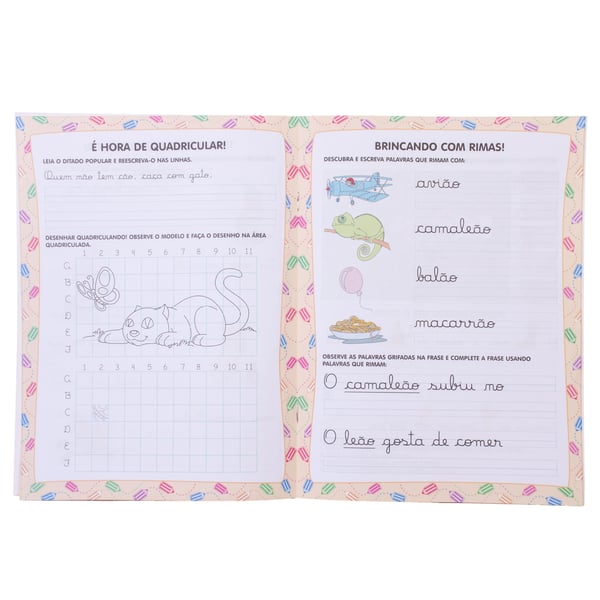 É HORA DE QUADRICULAR!
LEIA O DITADO POPULAR E REESCREVA-O NAS LINHAS.
Quem não tem cão, caça com gato.
DESENHAR QUADRICULANDO! OBSERVE O MODELO E FAÇA O DESENHO NA ÁREA
QUADRICULADA.
1 2 3 4 5 6 7 8 9 10 11
A
B
C
D
E
F
1 2 3 4 5 6 7 8 9 10 11
A
B
C
D
E
F
BRINCANDO COM RIMAS!
DESCUBRA E ESCREVA PALAVRAS QUE RIMAM COM:
avião
camaleão
balão
macarrão
OBSERVE AS PALAVRAS GRIFADAS NA FRASE E COMPLETE A FRASE USANDO
PALAVRAS QUE RIMAM:
O camaleão subiu no
O leão gosta de comer